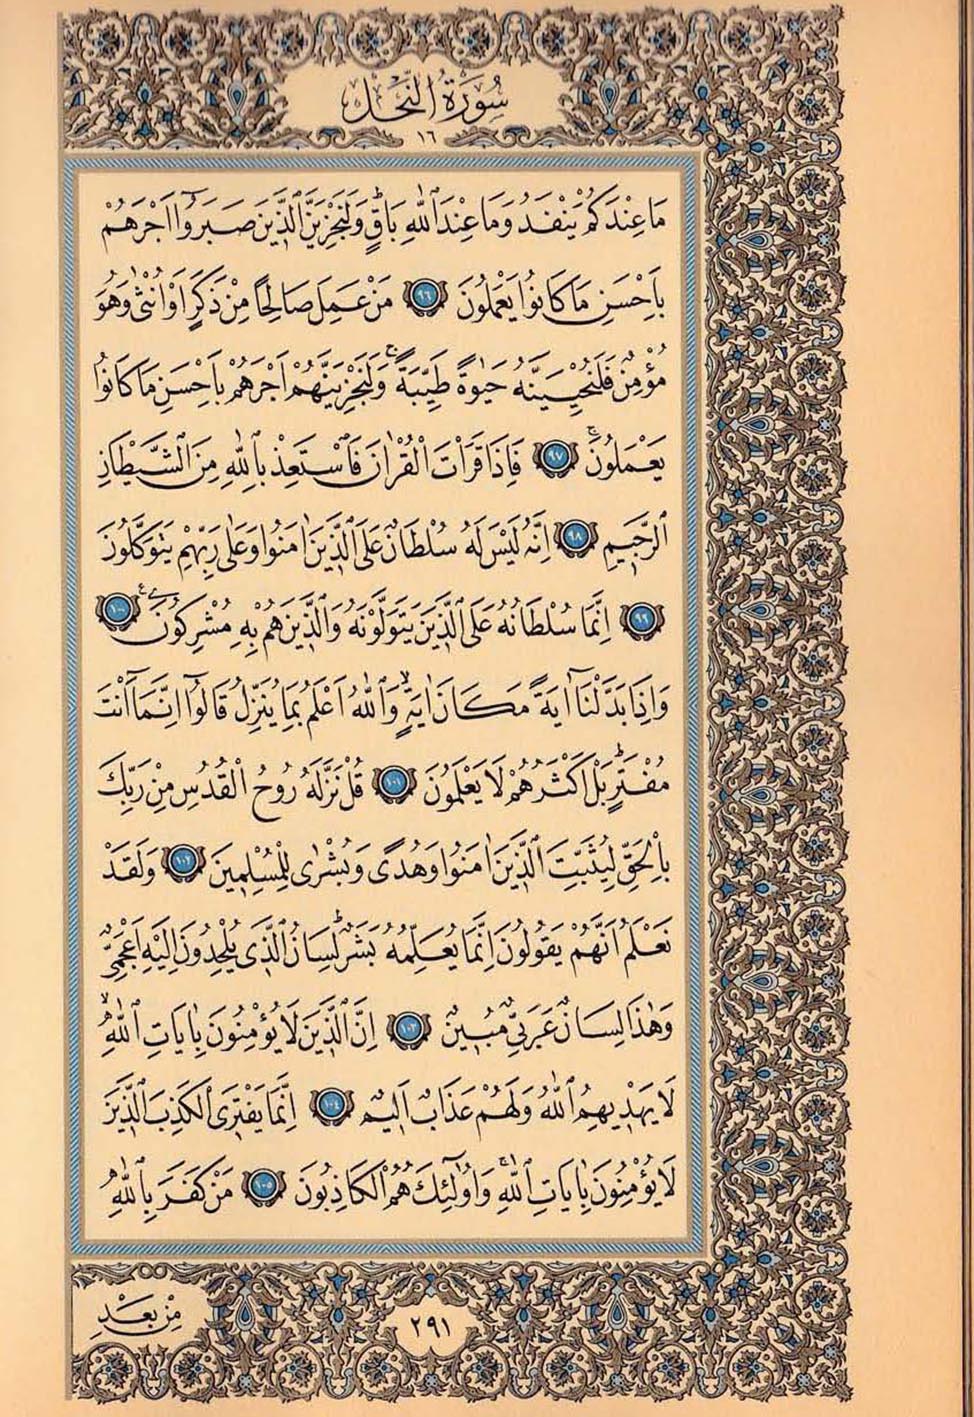 سُورَةُ النَّحْلِ
١٦
مَا عِنْدَكُمْ يَنْفَدُ وَمَا عِنْدَ اللّٰهِ بَاقٍۜ وَلَنَجْزِيَنَّ الَّذ۪ينَ صَبَرُٓوا اَجْرَهُمْ
بِاَحْسَنِ مَا كَانُوا يَعْمَلُونَ ﴿٩٦﴾ مَنْ عَمِلَ صَالِحًا مِنْ ذَكَرٍ اَوْ اُنْثٰى وَهُوَ
مُؤْمِنٌ فَلَنُحْيِيَنَّهُ حَيٰوةً طَيِّبَةًۚ وَلَنَجْزِيَنَّهُمْ اَجْرَهُمْ بِاَحْسَنِ مَا كَانُوا
يَعْمَلُونَۚ ﴿٩٧﴾ فَاِذَا قَرَأْتَ الْقُرْاٰنَ فَاسْتَعِذْ بِاللّٰهِ مِنَ الشَّيْطَانِ
الرَّج۪يمِ ﴿٩٨﴾ اِنَّهُ لَيْسَ لَهُ سُلْطَانٌ عَلَى الَّذ۪ينَ اٰمَنُوا وَعَلٰى رَبِّهِمْ يَتَوَكَّلُونَ
﴿٩٩﴾ اِنَّمَا سُلْطَانُهُ عَلَى الَّذ۪ينَ يَتَوَلَّوْنَهُ وَالَّذ۪ينَ هُمْ بِه۪ مُشْرِكُونَ۟ ﴿١٠٠﴾
وَاِذَا بَدَّلْنَٓا اٰيَةً مَكَانَ اٰيَةٍۙ وَاللّٰهُ اَعْلَمُ بِمَا يُنَزِّلُ قَالُٓوا اِنَّمَٓا اَنْتَ
مُفْتَرٍۜ بَلْ اَكْثَرُهُمْ لَا يَعْلَمُونَ ﴿١٠١﴾ قُلْ نَزَّلَهُ رُوحُ الْقُدُسِ مِنْ رَبِّكَ
بِالْحَقِّ لِيُثَبِّتَ الَّذ۪ينَ اٰمَنُوا وَهُدًى وَبُشْرٰى لِلْمُسْلِم۪ينَ ﴿١٠٢﴾ وَلَقَدْ
نَعْلَمُ اَنَّهُمْ يَقُولُونَ اِنَّمَا يُعَلِّمُهُ بَشَرٌۜ لِسَانُ الَّذ۪ي يُلْحِدُونَ اِلَيْهِ اَعْجَمِيٌّ
وَهٰذَا لِسَانٌ عَرَبِيٌّ مُب۪ينٌ ﴿١٠٣﴾ اِنَّ الَّذ۪ينَ لَا يُؤْمِنُونَ بِاٰيَاتِ اللّٰهِۙ
لَا يَهْد۪يهِمُ اللّٰهُ وَلَهُمْ عَذَابٌ اَل۪يمٌ ﴿١٠٤﴾ اِنَّمَا يَفْتَرِي الْكَذِبَ الَّذ۪ينَ
لَا يُؤْمِنُونَ بِاٰيَاتِ اللّٰهِۚ وَاُو۬لٰٓئِكَ هُمُ الْكَاذِبُونَ ﴿١٠٥﴾ مَنْ كَفَرَ بِاللّٰهِ
مِنْ بَعْدِ
٢٩١